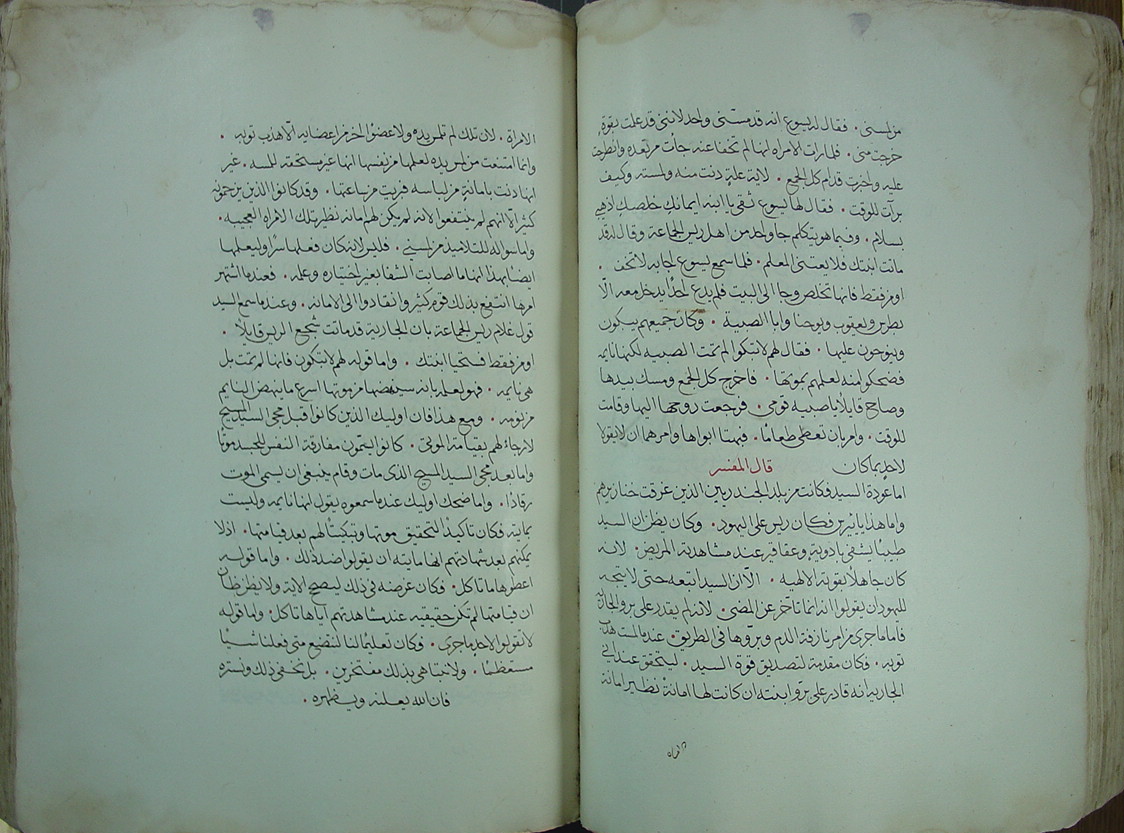 من لمسني. فقال له يسوع انه قد مسني واحد لانني قد علمت بقوة
خرجت مني. فلما رات الامراه انها لم تخفا عنه جأت مرتعده وانطرحت
عليه واخبرت قدام كل الجمع. لاية علةٍ دنت منه ولمسته وكيف
برأت للوقت. فقال لها يسوع ثقي يا ابنه ايمانكِ خلصكِ اذهبي
بسلام. وفيما هو يتكلم جا واحد من اهل ريس الجماعة وقال له قد
ماتت ابنتك فلا يعتني المعلم. فلما سمع يسوع اجابه لا تخف.
اومن فقط فانها تخلص وجا الى البيت فلم يدع احدًا يدخل معه الّا
بطرس ويعقوب ويوحنا وابا الصبية. وكان جميعهم يبكون
وينوحون عليها. فقال لهم لا تبكوا لم تمت الصبيه لكنها نايمه
فضحكو منه لعلمهم بموتها. فاخرج كل الجمع ومسك بيدها
وصاح قايلًا يا صبيه قومي. فرجعت روحها اليها وقامت
للوقت. وامر بان تعطى طعامًا. فبهتا ابواها وامرهما ان لا يقولا
لاحدٍ بما كان قال المفسر
اما عودة السيد فكانت من بلد الجندريين الذين غرقت خنازيرهم
واما هذا يائيرس فكان ريس على اليهود. وكان يظن ان السيد
طبيبًا يشفي بادويةٍ وعقاقير عند مشاهدته المريض. لانه
كان جاهلًا بقوته الالهيه. الّا ان السيد اتبعه حتى لا يتجه
لليهود ان يقولوا انه انما تاخر عن المضي. لانه لم يقدر على برو الجاريه
فاما ما جرى من امر نازفة الدم وبروها في الطريق. عندما لمست هدب
ثوبه. فكان مقدمة لتصديق قوة السيد. ليتحقق عند ابي
الجاريه انه قادر على برو ابنته ان كانت لها امانة نظير امانة
الامراه
الامراة. لان تلك لم تلمس يده ولا عضوًا اخر من اعضايه الّا هدب ثوبه.
وانما امتنعت من لمس يده لعلمها من نفسها انها غير مستحقه للمسه. غير
انها دنت بامانةٍ من لباسه فبريت من ساعتها. وقد كانوا الذين يزحمونه
كثيرًا الّا انهم لم ينتفعوا لانه لم يكن لهم امانه نظير تلك الامراه العجيبه.
واما سواله للتلاميذ من لمسني. فليس لانه كان فعلها سرًا وليعلمها
ايضًا بهذا انها ما اصابت الشفا بغير اختياره وعلمه. فعندما اشتهر
امرها انتفع بذلك قوم كثير وانقادوا الى الامانه. وعندما سمع السيد
قول غلام ريس الجماعة بان الجارية قد ماتت شجع الريس قايلًا.
اومن فقط فستحيا ابنتك. واما قوله لهم لا تبكون فانها لم تمت بل
هي نايمه. فهو لعلمه بانه سينهضها من موتها اسرع ما ينهض النايم
من نومه. ومع هذا فان اوليك الذين كانوا قبل مجي السيد المسيح
لا رجاء لهم بقيامة الموتى. كانوا يسمون مفارقة النفس للجسد موتًا
واما بعد مجي السيد المسيح الذي مات وقام ينبغي ان يسمى الموت
رقادًا. واما ضحك اوليك عندما سمعوه يقول انها نايمه وليست
بمايته فكان تاكيدًا لتحقيق موتها وتبكيتًا لهم بعد قيامتها. اذ لا
يمكنهم بعد شهادتهم انها مايته ان يقولوا ضد ذلك. واما قوله
اعطوها ما تاكل. فكان غرضه في ذلك ليصحح الاية ولا يظن ظان
ان قيامتها لم تكن حقيقيه عند مشاهدتهم اياها تاكل. واما قوله
لا تقولوا لاحد ما جرى. فكان تعليمًا لنا لنتضع متى فعلنا شيًا
مستعظمًا. ولا نتباهى بذلك مفتخرين. بل نخفي ذلك ونستره
فان الله يعلنه ويظهره.